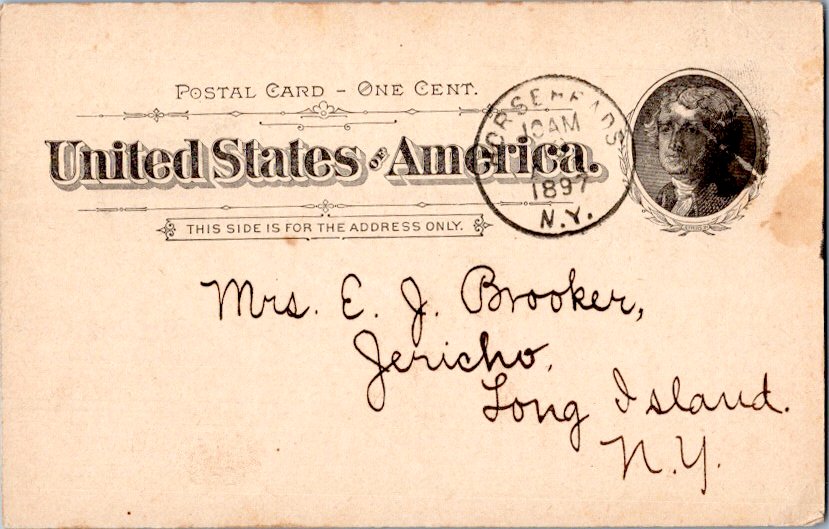 POSTAL CARD - ONE CENT.
United States OF America.
THIS SIDE IS FOR THE ADDRESS ONLY.
HORSEHEADS
10AM
1897
N.Y.
Mrs. E. J. Brooker,
Jericho,
Long Island.
N.Y.